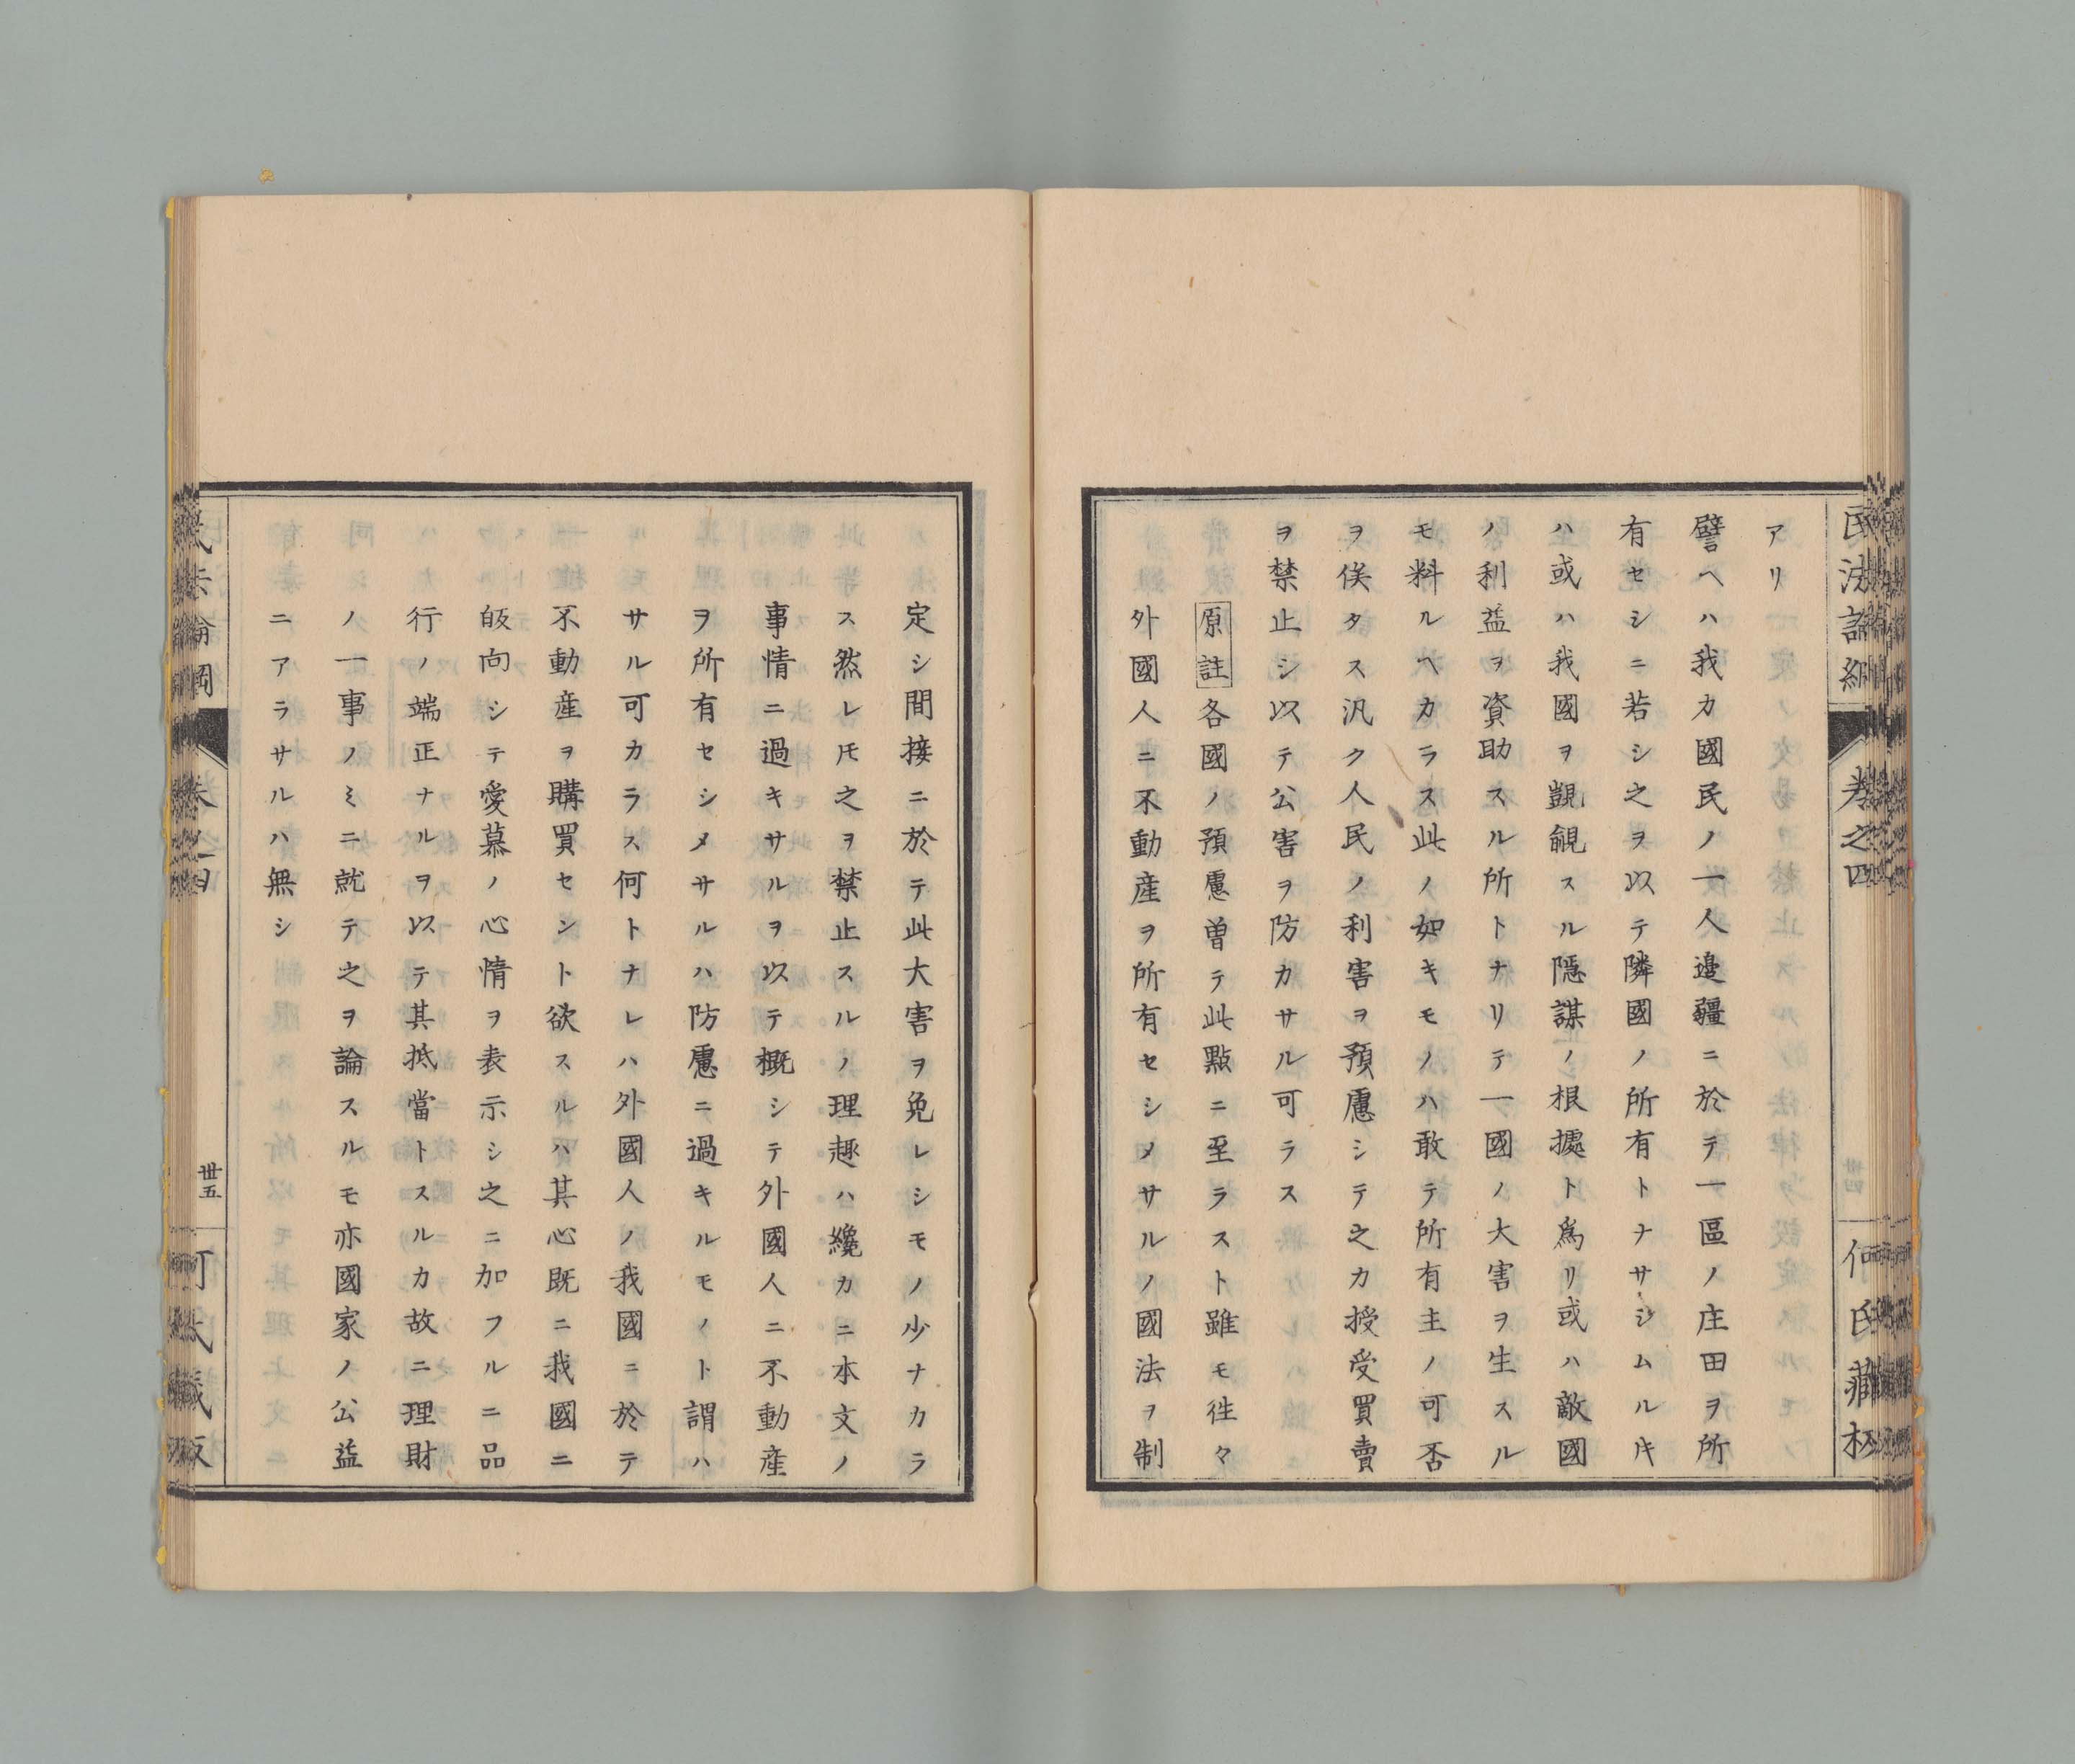 民法論綱
卷之四
何氏藏板
アリ
譬ヘハ我カ國民ノ一人邊疆ニ於テ一區ノ庄田ヲ所
有セシニ若シ之ヲ以テ隣國ノ所有トナサシムル𪜈
ハ或ハ我國ヲ覬覦スル隱謀ノ根據ト爲リ或ハ敵國
ノ利益ヲ資助スル所トナリテ一國ノ大害ヲ生スル
モ料ルヘカラス此ノ如キモノハ敢テ所有主ノ可否
ヲ俟タス汎ク人民ノ利害ヲ預慮シテ之カ授受買賣
ヲ禁止シ以テ公害ヲ防カサル可ラス
原註各國ノ預慮曽テ此點ニ至ラスト雖モ徃々
外國人ニ不動產ヲ所有セシメサルノ國法ヲ制
定シ間接ニ於テ此大害ヲ免レシモノ少ナカラ
ス然レ𪜈之ヲ禁止スルノ理趣ハ纔カニ本文ノ
事情ニ過キサルヲ以テ概シテ外國人ニ不動產
ヲ所有セシメサルハ防慮ニ過キルモノト謂ハ
サル可カラス何トナレハ外國人ノ我國ニ於テ
不動產ヲ購買セント欲スルハ其心既ニ我國ニ
皈向シテ愛慕ノ心情ヲ表示シ之ニ加フルニ品
行ノ端正ナルヲ以テ其抵當トスルカ故ニ理財
ノ一事ノミニ就テ之ヲ論スルモ亦國家ノ公益
ニアラサルハ無シ
民法論綱
卷之四
卅五
何氏藏板